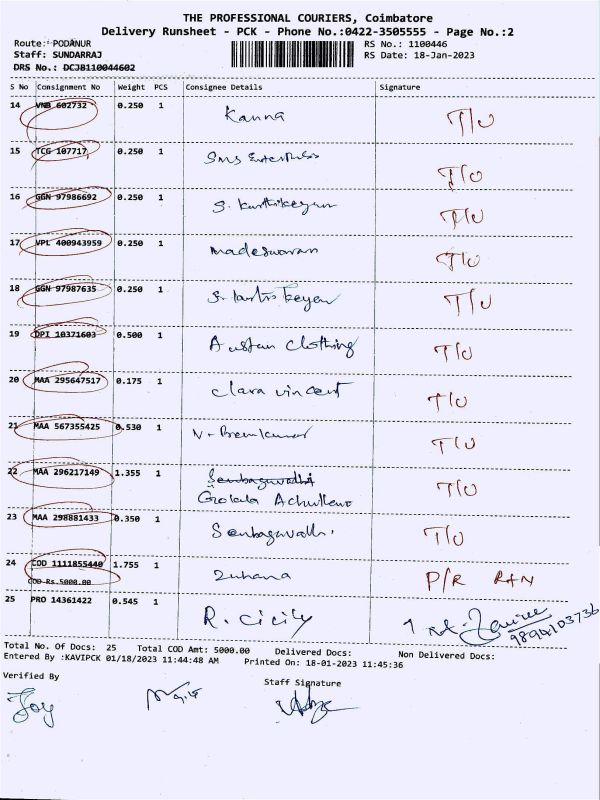 THE PROFESSIONAL COURIERS, Coimbatore
Delivery Runsheet - PCK - Phone No.:0422-3505555 - Page No.:2
Route: PODANUR RS No.: 1100446
Staff: SUNDARRAJ RS Date: 18-Jan-2023
DRS No.: DCJB110044602
S No Consignment No Weight PCS Consignee Details Signature
14 VNB 602732 0.250 1 Kanna T/O
15 TCG 107717 0.250 1 SMS T/O
16 GGN 97986692 0.250 1 S. Karthikeyan T/O
17 VPL 400943959 0.250 1 Madeswaran T/O
18 GGN 97987635 0.250 1 T/O
19 DPI 10371603 0.500 1 Clothing T/O
20 MAA 295647517 0.175 1 Clara vincent T/O
21 MAA 567355425 0.530 1 T/O
22 MAA 296217149 1.355 1 T/O
23 MAA 298881433 0.350 1 T/O
24 COD 1111855440 1.755 1 Zuhana P/R RAN
COD Rs.5000.00
25 PRO 14361422 0.545 1 R. Cicily
Total No. Of Docs: 25 Total COD Amt: 5000.00 Delivered Docs: Non Delivered Docs:
Entered By :KAVIPCK 01/18/2023 11:44:48 AM Printed On: 18-01-2023 11:45:36
Verified By Staff Signature
Joy